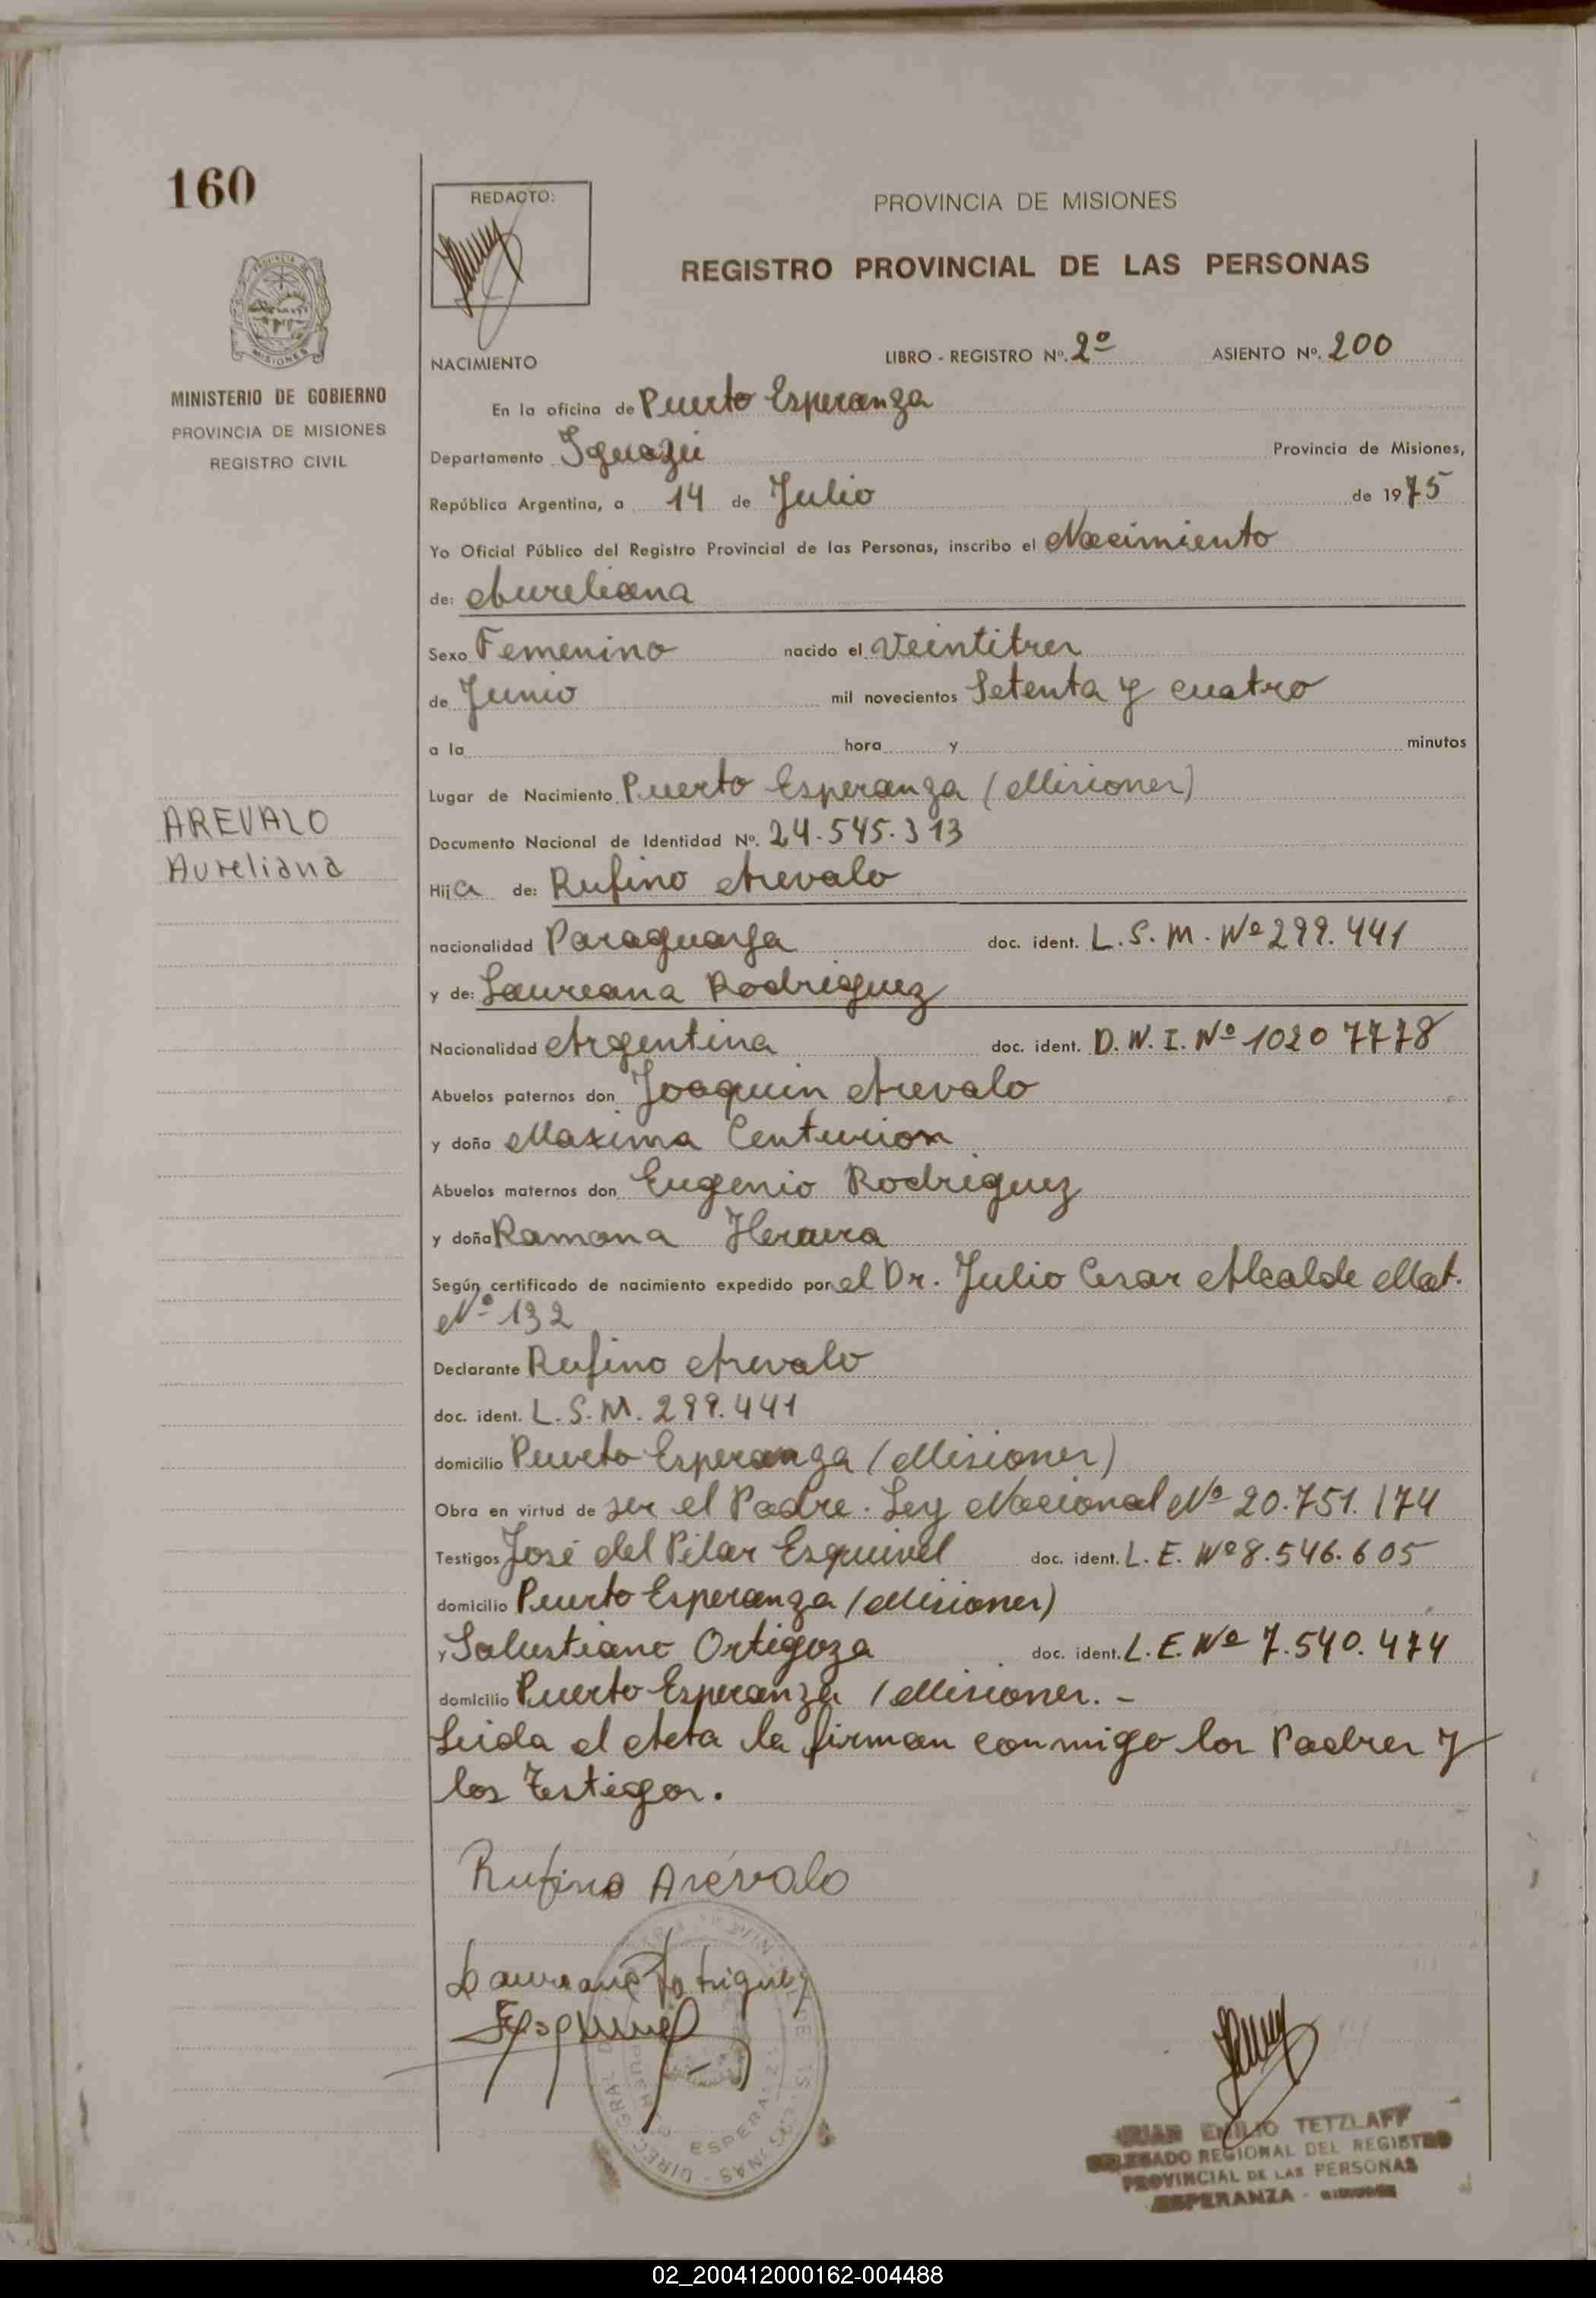 160
REDACTO:
PROVINCIA DE MISIONES
REGISTRO PROVINCIAL DE LAS PERSONAS
PROVINCIA DE
MISIONES
MINISTERIO DE GOBIERNO
PROVINCIA DE MISIONES
REGISTRO CIVIL
NACIMIENTO LIBRO - REGISTRO Nº. 2º ASIENTO Nº. 200
En la oficina de Puerto Esperanza
Departamento Iguazú Provincia de Misiones,
República Argentina, a 14 de Julio de 1975
Yo Oficial Público del Registro Provincial de las Personas, inscribo el Nacimiento
de: Aureliana
Sexo Femenino nacido el Veintitres
de Junio mil novecientos Setenta y cuatro
a la hora y minutos
Lugar de Nacimiento Puerto Esperanza (Misiones)
Documento Nacional de Identidad Nº. 24.545.313
AREVALO
Aureliana
Hija de: Rufino Arevalo
nacionalidad Paraguaya doc. ident. L.S.M. Nº 299.441
y de: Laureana Rodriguez
Nacionalidad Argentina doc. ident. D.N.I. Nº 1020 7778
Abuelos paternos don Joaquin Arevalo
y doña Maxima Centurion
Abuelos maternos don Eugenio Rodriguez
y doña Ramona Herrera
Según certificado de nacimiento expedido por el Dr. Julio Cesar Alcalde Mat.
Nº 132
Declarante Rufino Arevalo
doc. ident. L.S.M. 299.441
domicilio Puerto Esperanza (Misiones)
Obra en virtud de ser el Padre. Ley Nacional Nº 20.751./74
Testigos José del Pilar Esquivel doc. ident. L.E. Nº 8.546.605
domicilio Puerto Esperanza (Misiones)
y Salustiano Ortigoza doc. ident. L.E. Nº 7.540.474
domicilio Puerto Esperanza (Misiones. -
Leida el Acta la firman conmigo los Padres y
los Testigos.
Rufino Arévalo
Laureana Rodriguez
Esquivel
ESPERANZA
JUAN EMILIO TETZLAFF
DELEGADO REGIONAL DEL REGISTRO
PROVINCIAL DE LAS PERSONAS
ESPERANZA - MISIONES
02_200412000162-004488